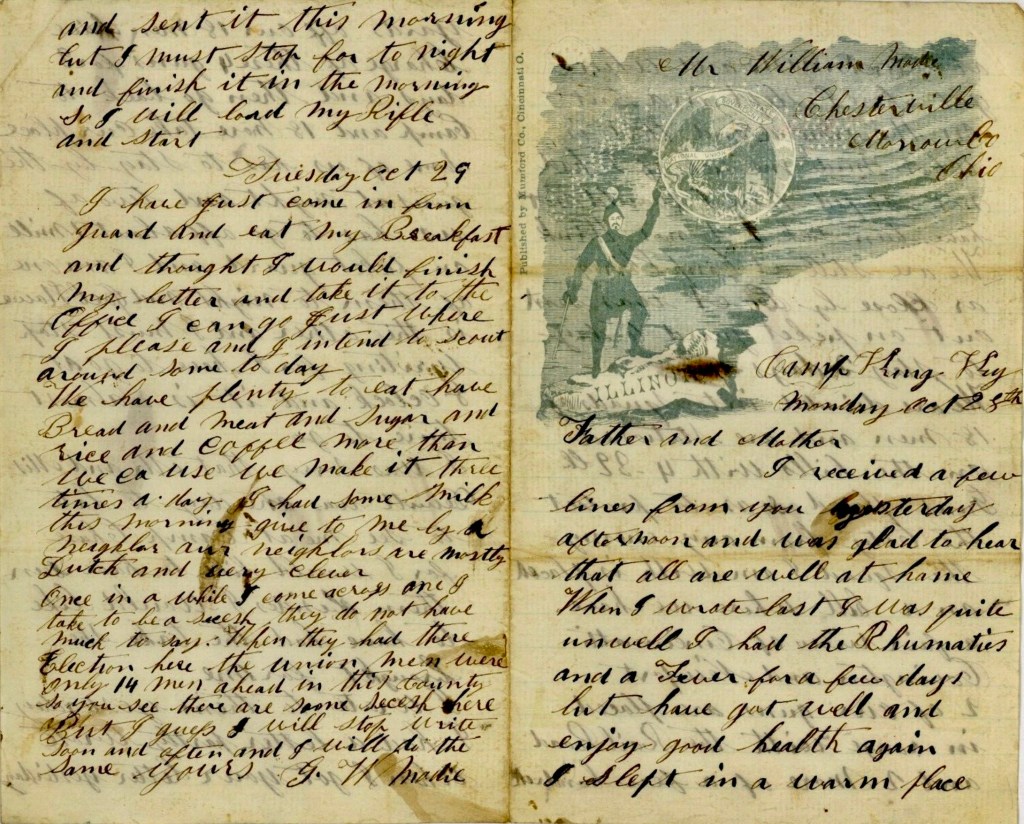 and sent it this morning
but I must stop for to night
and finish it in the morning
so I will load my Rifle
and start
Tuesday Oct 29
I have just come in from
guard and eat my Breakfast
and thought I would finish
my letter and take it to the
Office I can go Just where
I please and I intend to scout
around some to day
We have plenty to eat have
Bread and meat and Sugar and
rice and coffee more than
we ca use we make it three
times a day I had some milk
this morning give to me by a
neighbor aur neighbors are mostly
Dutch and very clever
Once in a while I come across one I
take to be a secesh they do not have
much to say. When they had there
Election here the union men were
only 14 men ahead in this county
so you see there are some secesh here
But I guess I will stop write
soon and often and I will do the
same yours G. W Modie
Published by Mumford Co., Cincinnati O.
Mr William Modie
Chesterville
Morrow Co
Ohio
ILLINOIS
Camp King Ky
Monday Oct 28th
Father and Mother
I received a few
lines from you yesterday
afternoon and was glad to hear
that all are well at home
When I wrote last I was quite
unwell I had the Rhumatics
and a Fever for a few days
but have got well and
enjoy good health again
I slept in a warm place